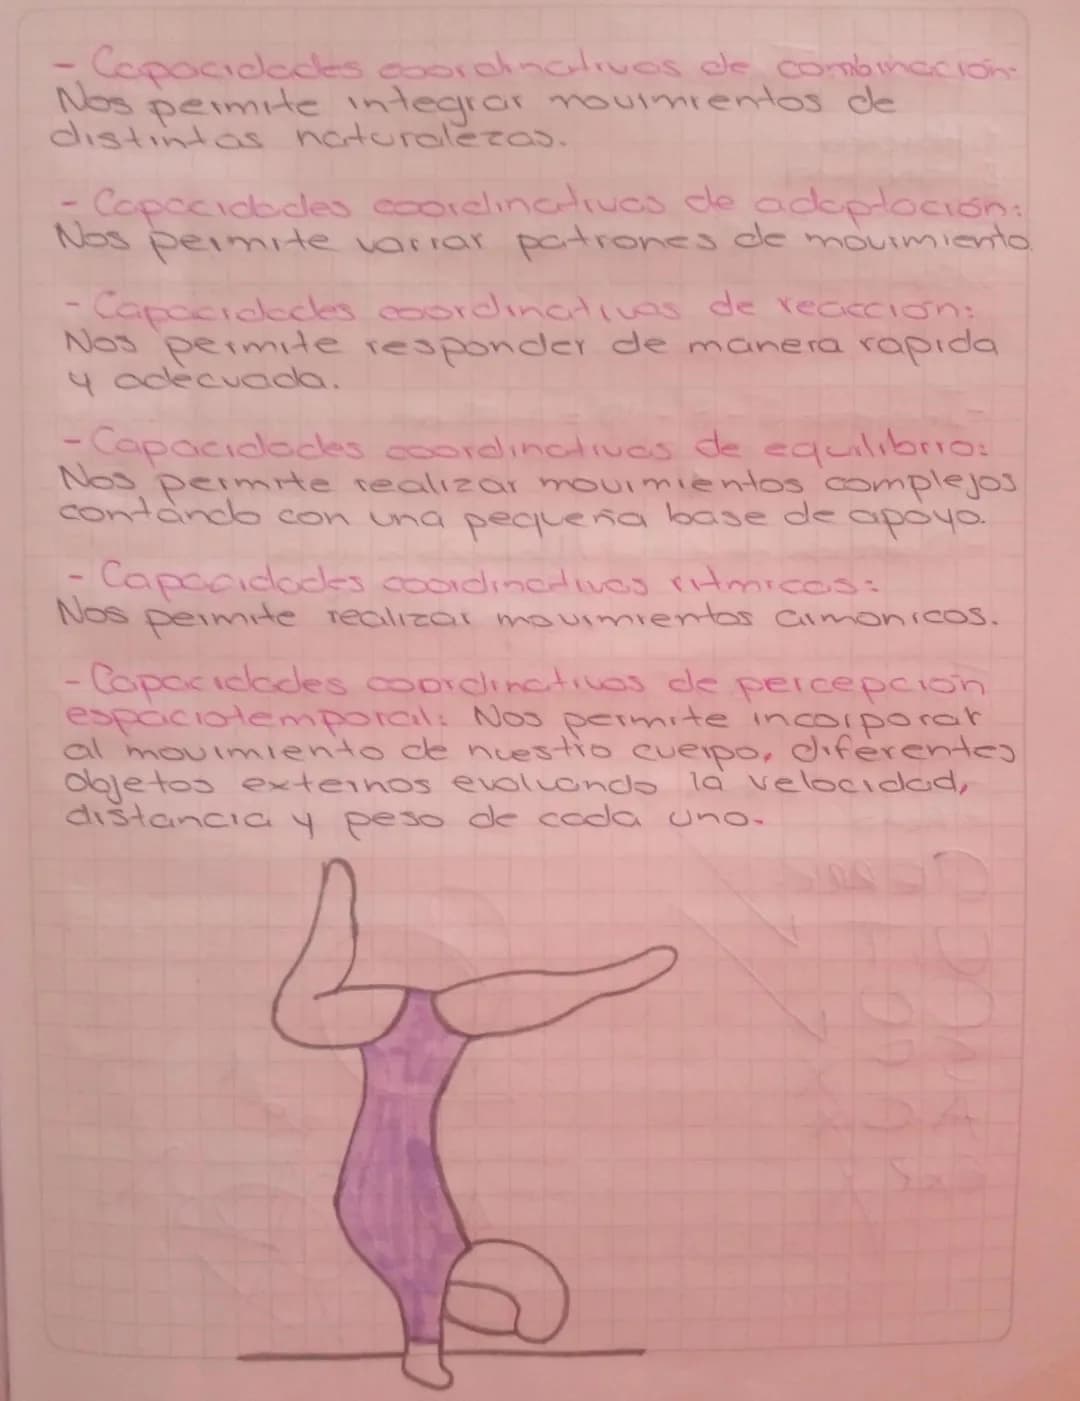 - Capacidades coordinativas de combinación:
Nos permite integrar movimientos de
distintas naturalezas.
- Capacidades coordinativas de adaptación:
Nos permite variar patrones de movimiento.
- Capacidades coordinativas de reacción:
Nos permite responder de manera rapida
y adecuada.
- Capacidades coordinativas de equilibrio:
Nos permite realizar movimientos complejos
contando con una pequeña base de apoyo.
- Capacidades coordinativas ritmicas:
Nos permite realizar movimientos armonicos.
- Capacidades coordinativas de percepción
espaciotemporal: Nos permite incorporar
al movimiento de nuestro cuerpo, diferentes
objetos externos evaluando la velocidad,
distancia y peso de cada uno.